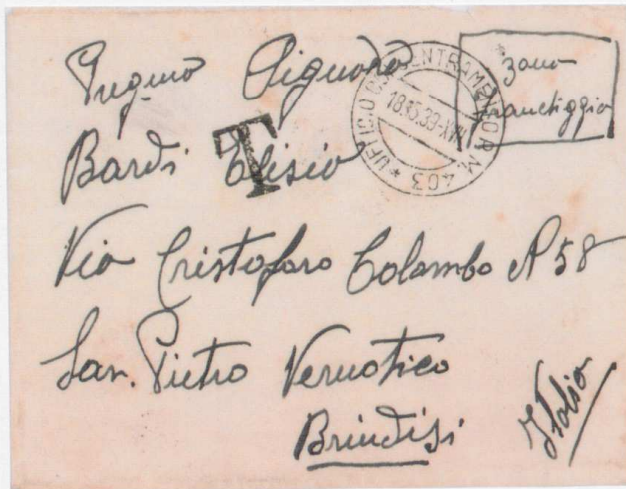 Pregmo Signore
Bardi Elisio
Via Cristofaro Colombo N 58
San. Pietro Vernotico
Brindisi
Italia
zona
franchiggio
T
*UFFICIO CONCENTRAMENTO P.M. 403*
18.5.39-XVII